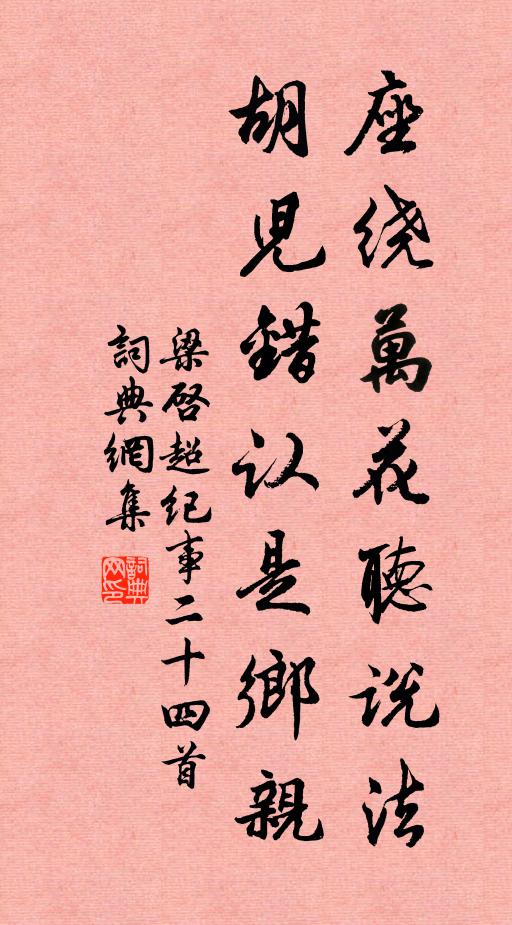 座绕萬花聴説法
胡児錯认是鄉親
梁啓超纪事二十四首
詞典網集
詞典网印